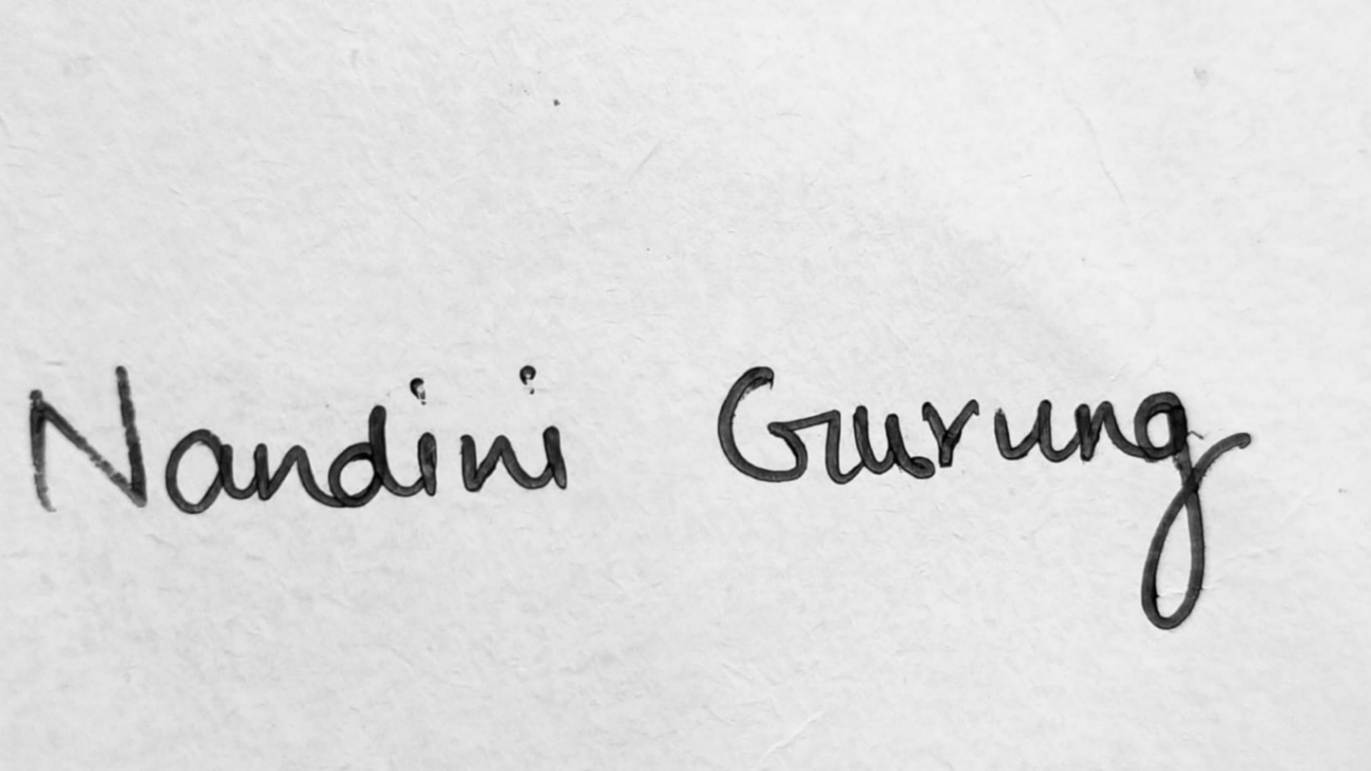 Nandini Gurung